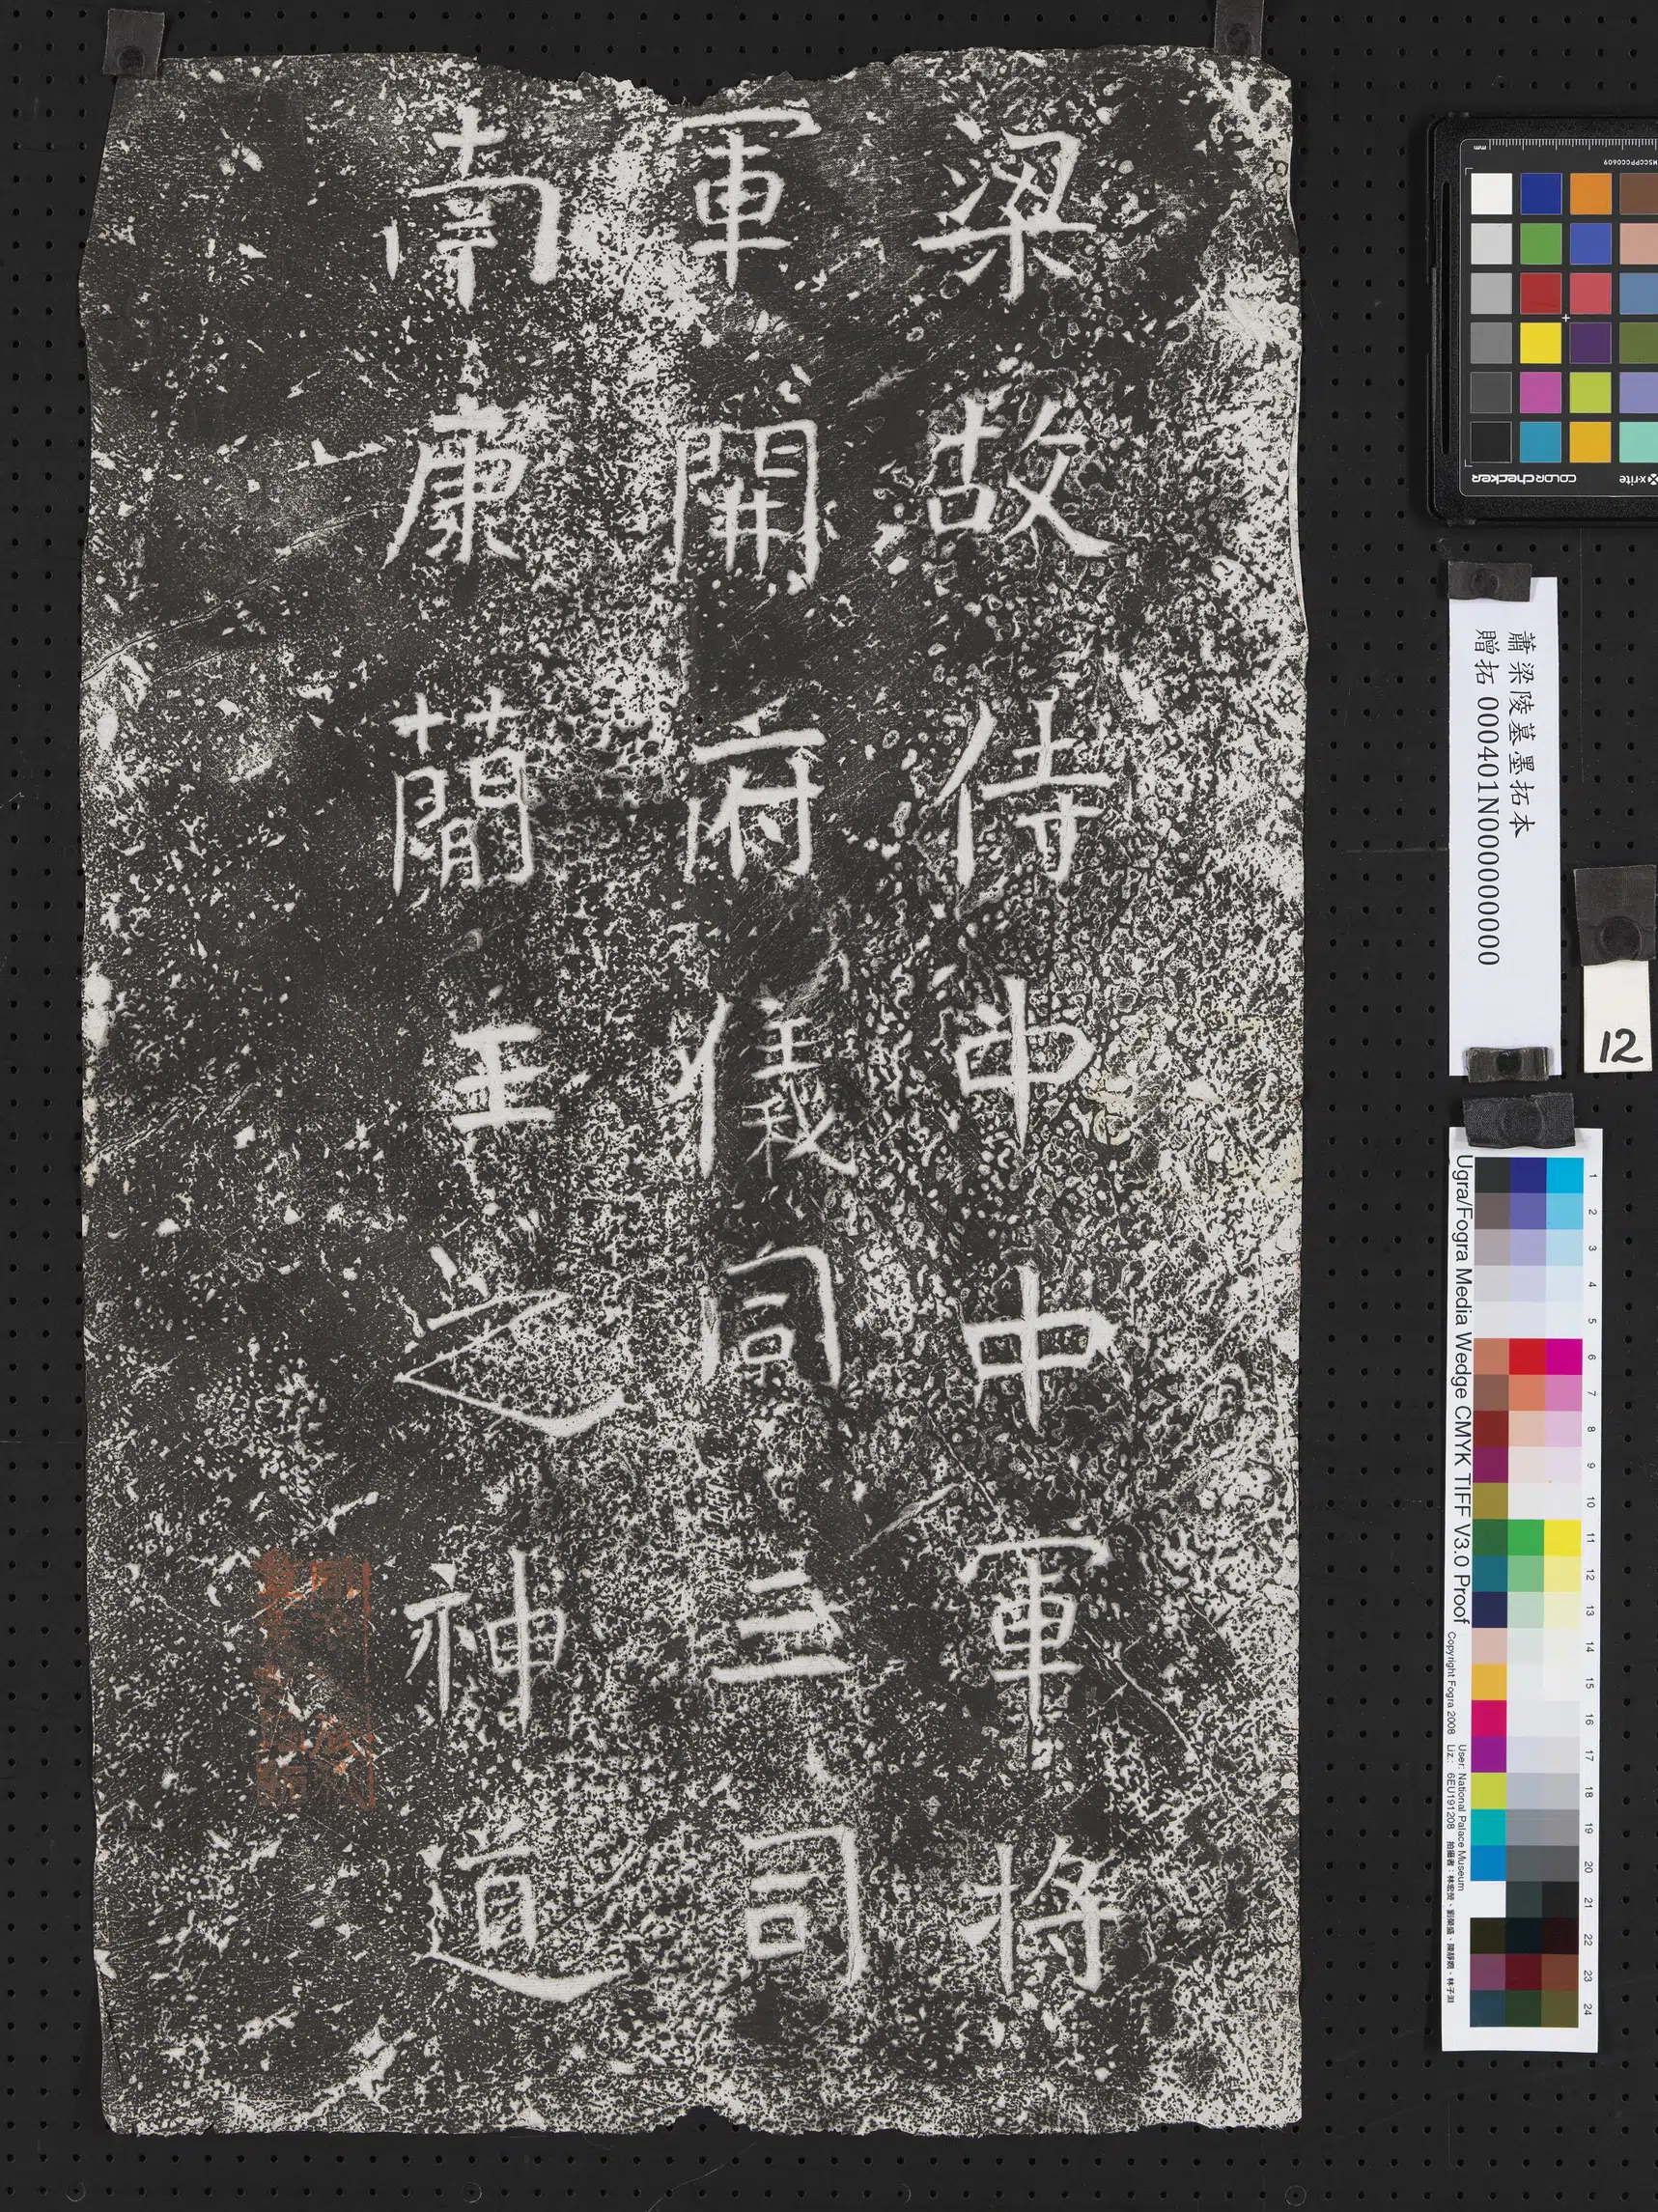 梁故侍中中軍將
軍開府儀同三司
南康簡王之神道
蕭梁陵墓墨拓本
贈拓 000401N000000000
12
colorchecker
x-rite
mm
MSCCPPCC0609
Ugra/Fogra Media Wedge CMYK TIFF V3.0 Proof
Copyright Fogra 2008
Liz.: 6EU191208
User: National Palace Museum
1
2
3
4
5
6
7
8
9
10
11
12
13
14
15
16
17
18
19
20
21
22
23
24